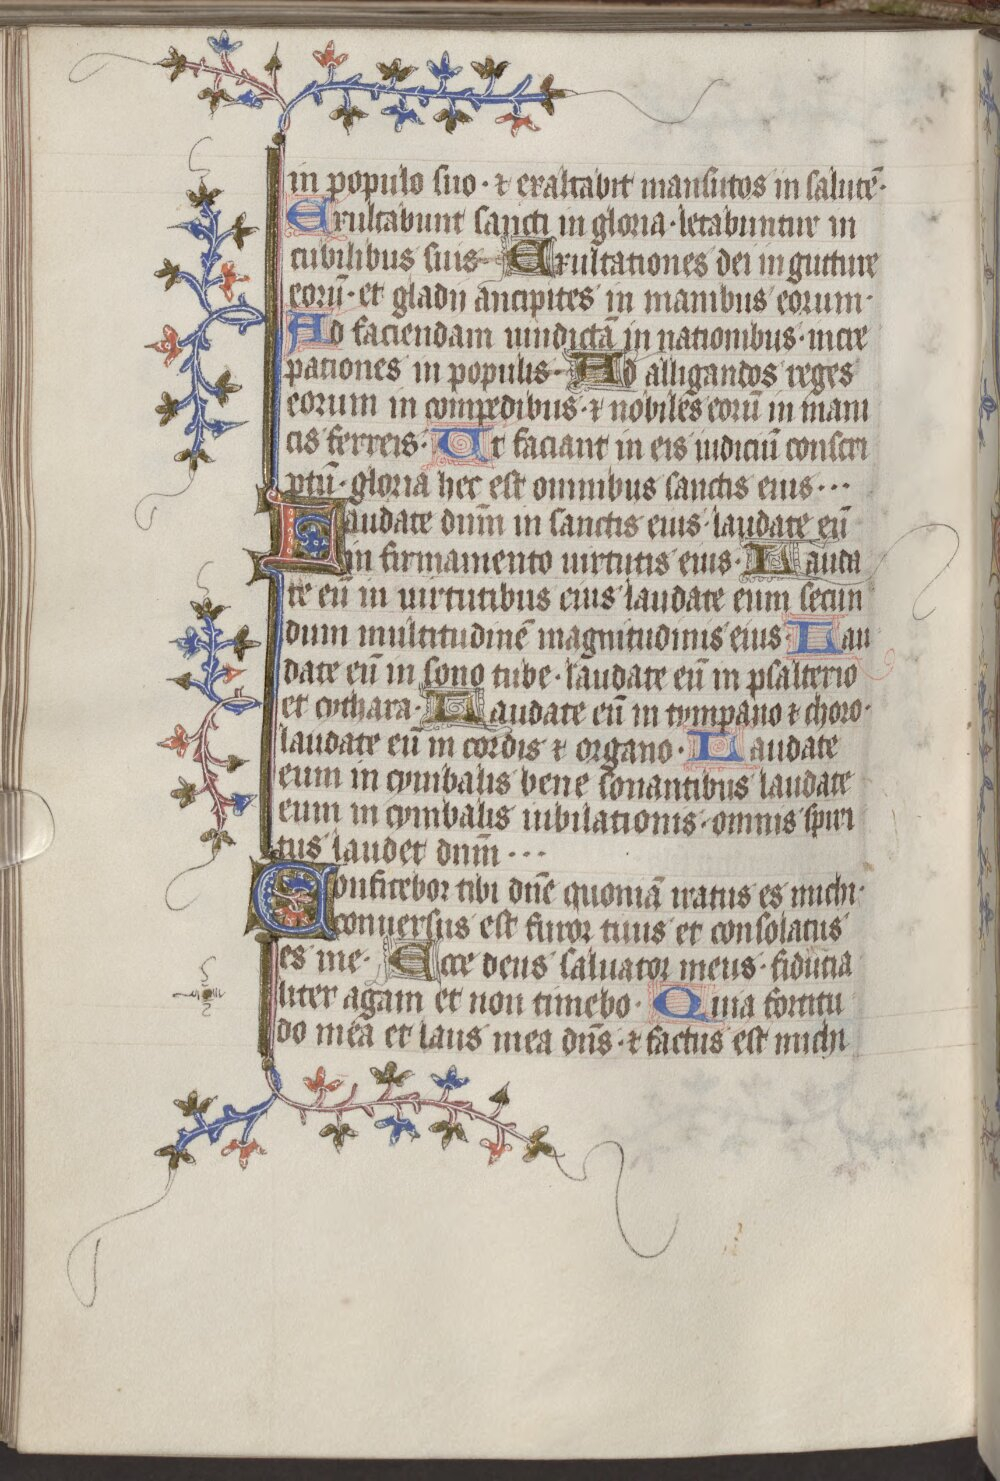 in populo suo · ⁊ exaltabit mansuetos in salutē ·
Exultabunt sancti in gloria · letabuntur in
cubilibus suis Exultationes dei in gutture
eorū · et gladii ancipites in manibus eorum ·
Ad faciendam uindictā in nationibus · incre
pationes in populis · Ad alligandos reges
eorum in compedibus · ⁊ nobiles eorū in mani
cis ferreis · Ut faciant in eis iudiciū conscri
ptū · gloria hec est omnibus sanctis eius · · ·
Laudate dnm̄ in sanctis eius · laudate eū
in firmamento uirtutis eius · Lauda
te eū in uirtutibus eius laudate eum secun
dum multitudinē magnitudinis eius Lau
date eū in sono tube · laudate eū in psalterio
et cythara · Laudate eū in tympano ⁊ choro ·
laudate eū in cordis ⁊ organo · Laudate
eum in cymbalis bene sonantibus laudate
eum in cymbalis iubilationis · omnis spiri
tus laudet dnm̄ · · ·
Confitebor tibi dn̄e quoniā iratus es michi ·
conuersus est furor tuus et consolatus
es me · Ecce deus saluator meus · fiducia
liter agam et non timebo · Quia fortitu
do mea et laus mea dn̄s · ⁊ factus est michi